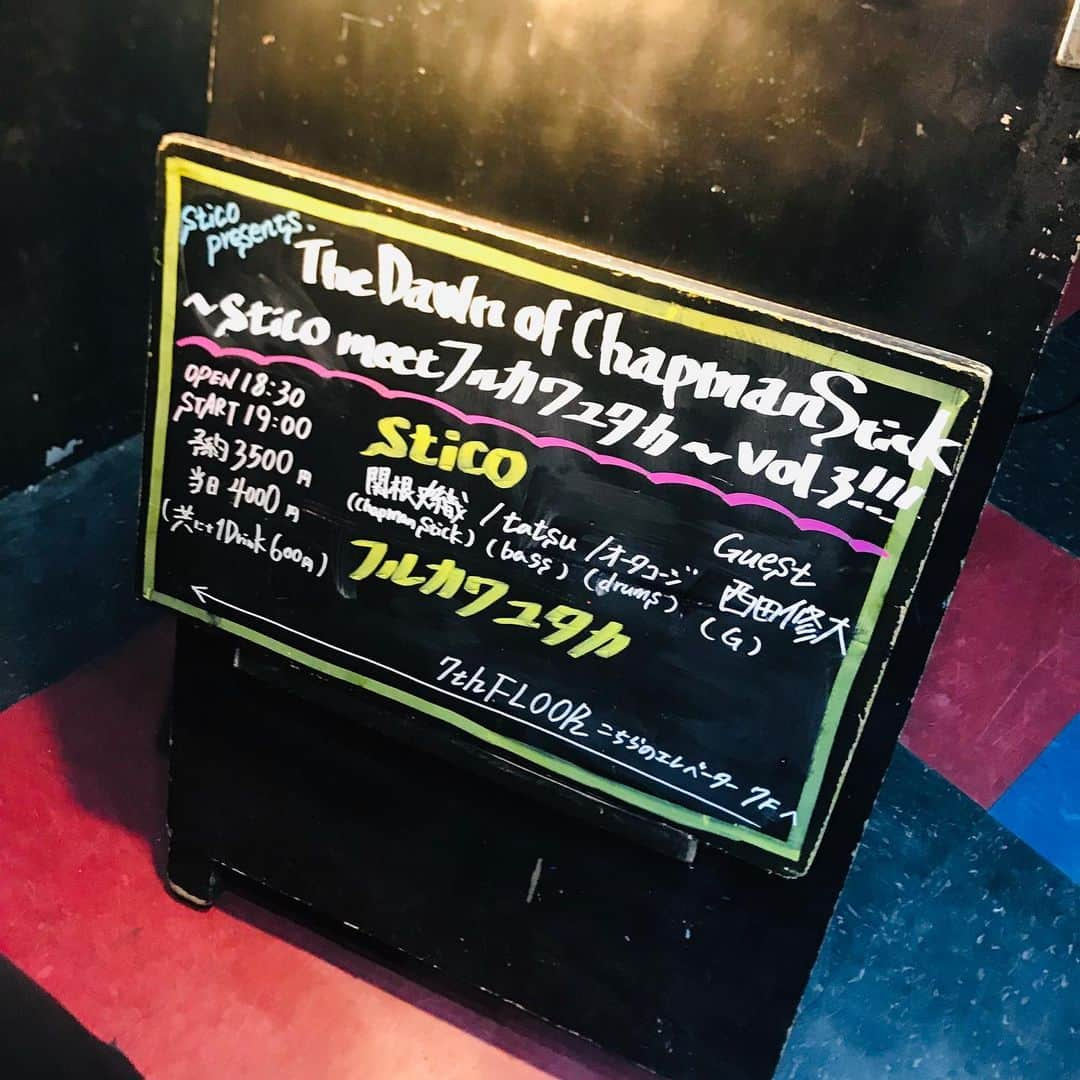 Stico presents.
The Dawn of Chapman Stick
~Stico meetフルカワユタカ~ vol.3!!!
OPEN 18:30
START 19:00
予約 3500円
当日 4000円
(共に+1Drink 600円)
Stico
関根史織 / tatsu / オータコージ
(Chapman Stick) (bass) (drums)
フルカワユタカ
Guest
西田修大
(G)
7th FLOOR こちらのエレベーター 7Fへ